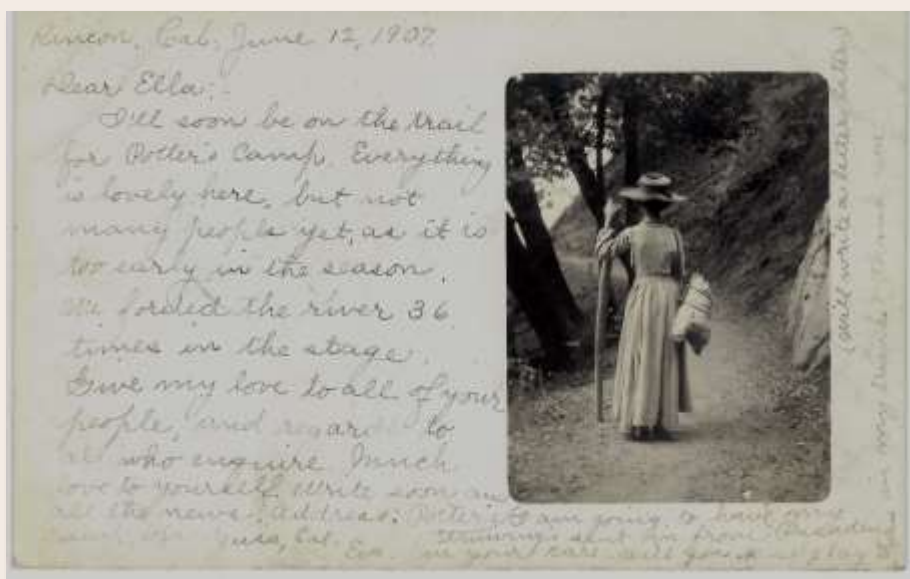 Rincon, Cal. June 12, 1907
Dear Ella:
I'll soon be on the trail
for Potter's Camp. Everything
is lovely here, but not
many people yet, as it is
too early in the season.
We forded the river 36
times in the stage.
Give my love to all of your
people, and regards to
all who enquire. Much
love to yourself. Write soon an
all the news. Address: Potter's
Cal.
I am going to have my
sent in from Pasadena
in your care. will you
(will write a letter later)
in my